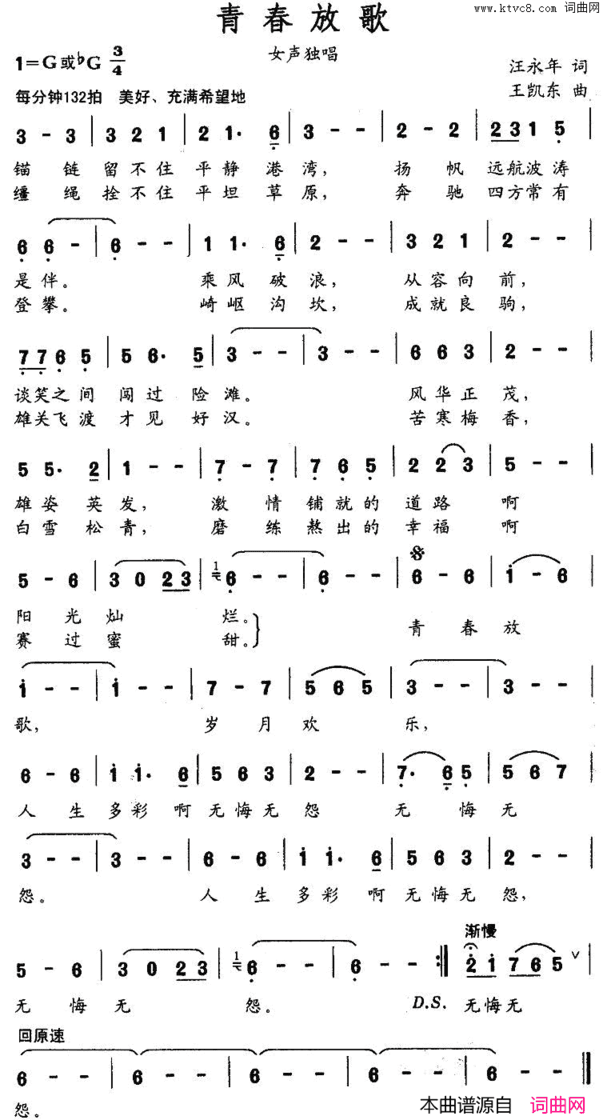 www.ktvc8.com 词曲网
青春放歌
女声独唱
1=G或♭G 3/4
汪永年 词
每分钟132拍 美好、充满希望地
王凯东 曲
3 - 3 | 3 2 1 | 2 1· 6 | 3 - - | 2 - 2 | 2 3 1 5 |
锚链留不住平静港湾，扬帆远航波涛
缰绳拴不住平坦草原，奔驰四方常有
6 6 - | 6 - - | 1 1· 6 | 2 - - | 3 2 1 | 2 - - |
是伴。乘风破浪，从容向前，
登攀。崎岖沟坎，成就良驹，
7 7 6 5 | 5 6· 5 | 3 - - | 3 - - | 6 6 3 | 2 - - |
谈笑之间闯过险滩。风华正茂，
雄关飞渡才见好汉。苦寒梅香，
5 5· 2 | 1 - - | 7 - 7 | 7 6 5 | 2 2 3 | 5 - - |
雄姿英发，激情铺就的道路啊
白雪松青，磨练熬出的幸福啊
5 - 6 | 3 0 2 3 | 1 6 - - | 6 - - | 6 - 6 | 1 - 6 |
阳光灿烂。
赛过蜜甜。
青春放
1 - - | 1 - - | 7 - 7 | 5 6 5 | 3 - - | 3 - - |
歌，岁月欢乐，
6 - 6 | 1 1· 6 | 5 6 3 | 2 - - | 7· 6 5 | 5 6 7 |
人生多彩啊无悔无怨无悔无
3 - - | 3 - - | 6 - 6 | 1 1· 6 | 5 6 3 | 2 - - |
怨。人生多彩啊无悔无怨，
渐慢
5 - 6 | 3 0 2 3 | 1 6 - - | 6 - - :| 2 1 7 6 5 ∨ |
无悔无怨。D.S. 无悔无
回原速
6 - - | 6 - - | 6 - - | 6 - - | 6 - - ‖
怨。
本曲谱源自 词曲网